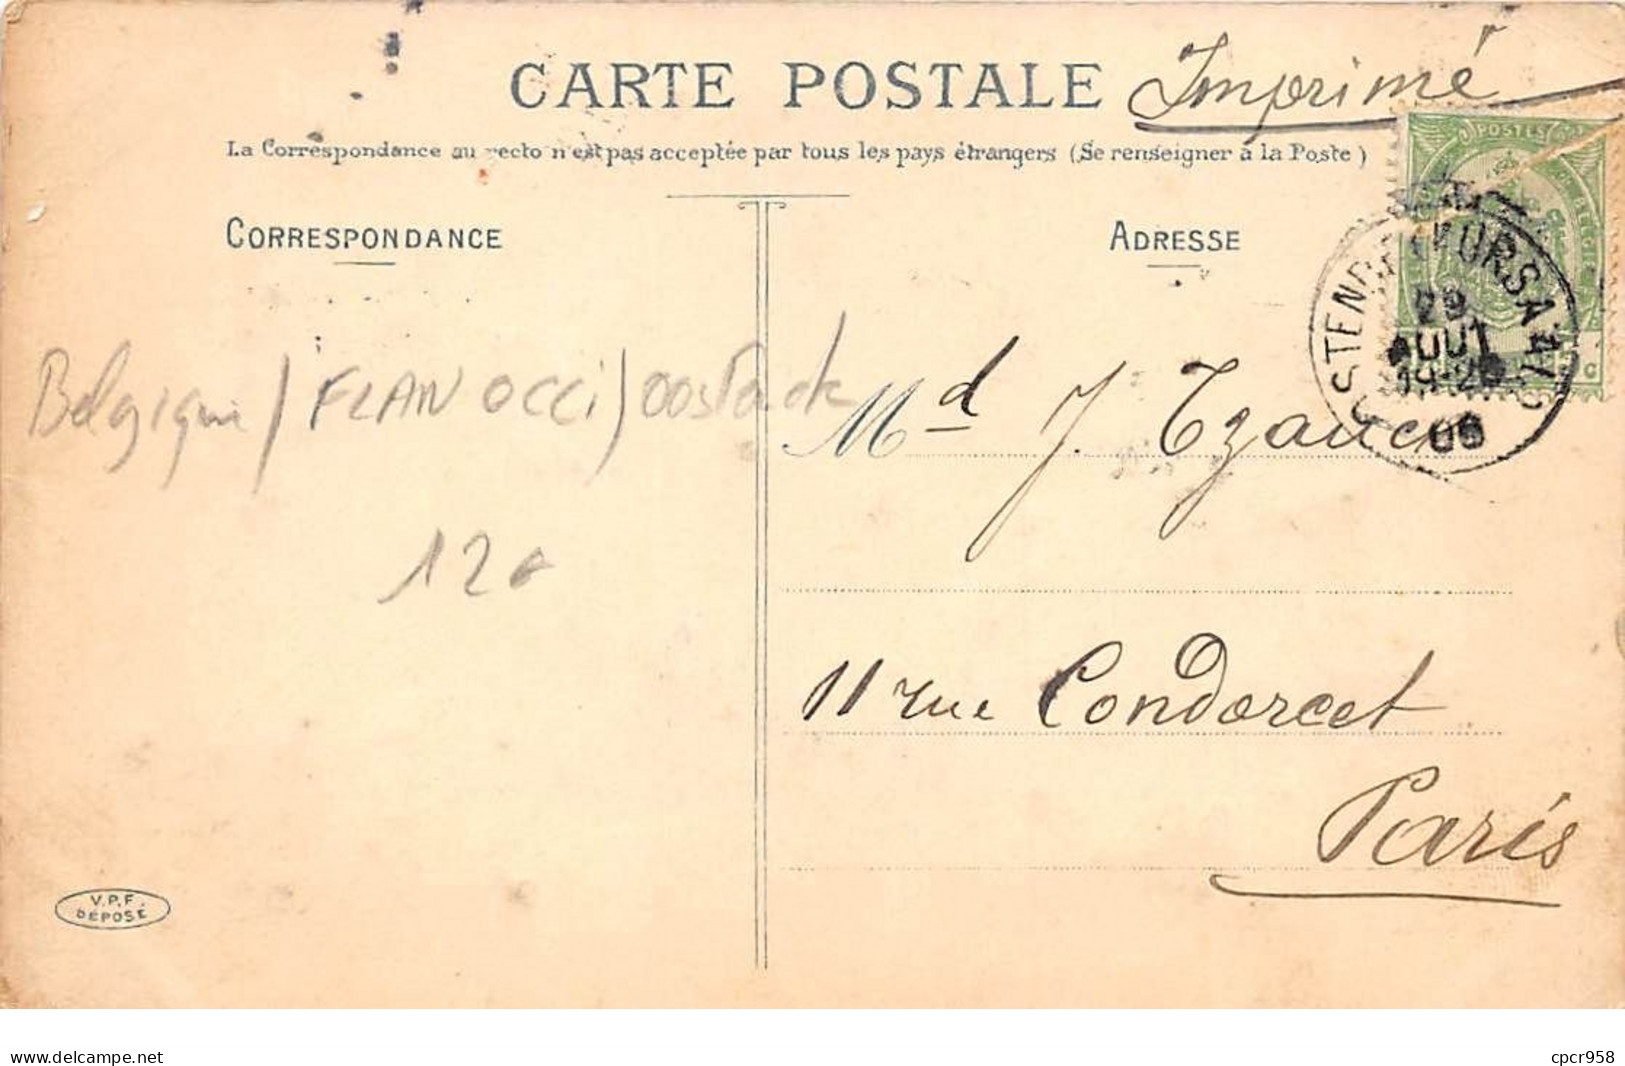 CARTE POSTALE Imprimé
La Correspondance au recto n'est pas acceptée par tous les pays étrangers (Se renseigner à la Poste)
POSTES
CORRESPONDANCE
ADRESSE
OSTENDE KURSAAL
29
AOUT
19-20
06
Belgique / FLAN OCCI /
Md J. Tzanck
12€
11 rue Condorcet
Paris
V.P.F.
DÉPOSÉ
www.delcampe.net
cpcr958